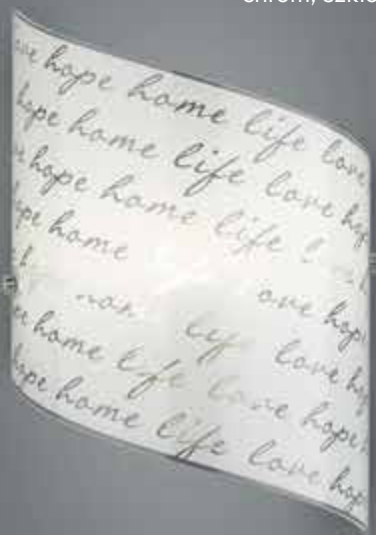 hope home life love
hope home life love hop
hope home life
home
love hop
life love
home life love hope
hope home life love hop